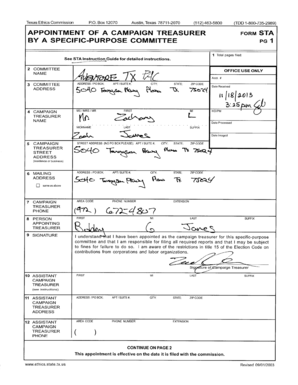 Texas Ethics Commission P.O. Box 12070 Austin, Texas 78711-2070 (512) 463-5800 (TDD 1-800-735-2989)
APPOINTMENT OF A CAMPAIGN TREASURER FORM STA
BY A SPECIFIC-PURPOSE COMMITTEE PG 1
See STA Instruction Guide for detailed instructions.
1 Total pages filed:
2 COMMITTEE NAME
TX PAC
OFFICE USE ONLY
3 COMMITTEE ADDRESS
ADDRESS / PO BOX; APT / SUITE #; CITY; STATE; ZIP CODE
5040 Tennyson Pkwy Plano TX 75024
Date Received
11/18/2013
3:25pm
4 CAMPAIGN TREASURER NAME
MS / MRS / MR FIRST MI
Mr. Zachary
NICKNAME LAST SUFFIX
Zach Jones
Date Processed
Date Imaged
5 CAMPAIGN TREASURER'S STREET ADDRESS
(residence or business)
STREET ADDRESS (NO PO BOX PLEASE); APT / SUITE #; CITY; STATE; ZIP CODE
5040 Tennyson Pkwy Plano TX 75024
6 MAILING ADDRESS
ADDRESS / PO BOX; APT / SUITE #; CITY; STATE; ZIP CODE
5040 Tennyson Pkwy Plano TX 75024
7 CAMPAIGN TREASURER PHONE
AREA CODE PHONE NUMBER EXTENSION
(972) 6724807
8 PERSON APPOINTING TREASURER
FIRST MI LAST SUFFIX
G Jones
9 SIGNATURE
I understand that I have been appointed as the campaign treasurer for this specific-purpose
committee and that I am responsible for filing all required reports and that I may be subject
to fines for failure to do so. I am aware of the restrictions in title 15 of the Election Code on
contributions from corporations and labor organizations.
Signature of Campaign Treasurer
10 ASSISTANT CAMPAIGN TREASURER
FIRST MI LAST SUFFIX
11 ASSISTANT CAMPAIGN TREASURER ADDRESS
ADDRESS / PO BOX; APT / SUITE #; CITY; STATE; ZIP CODE
12 ASSISTANT CAMPAIGN TREASURER PHONE
AREA CODE PHONE NUMBER EXTENSION
( )
CONTINUE ON PAGE 2
This appointment is effective on the date it is filed with the commission.
www.ethics.state.tx.us